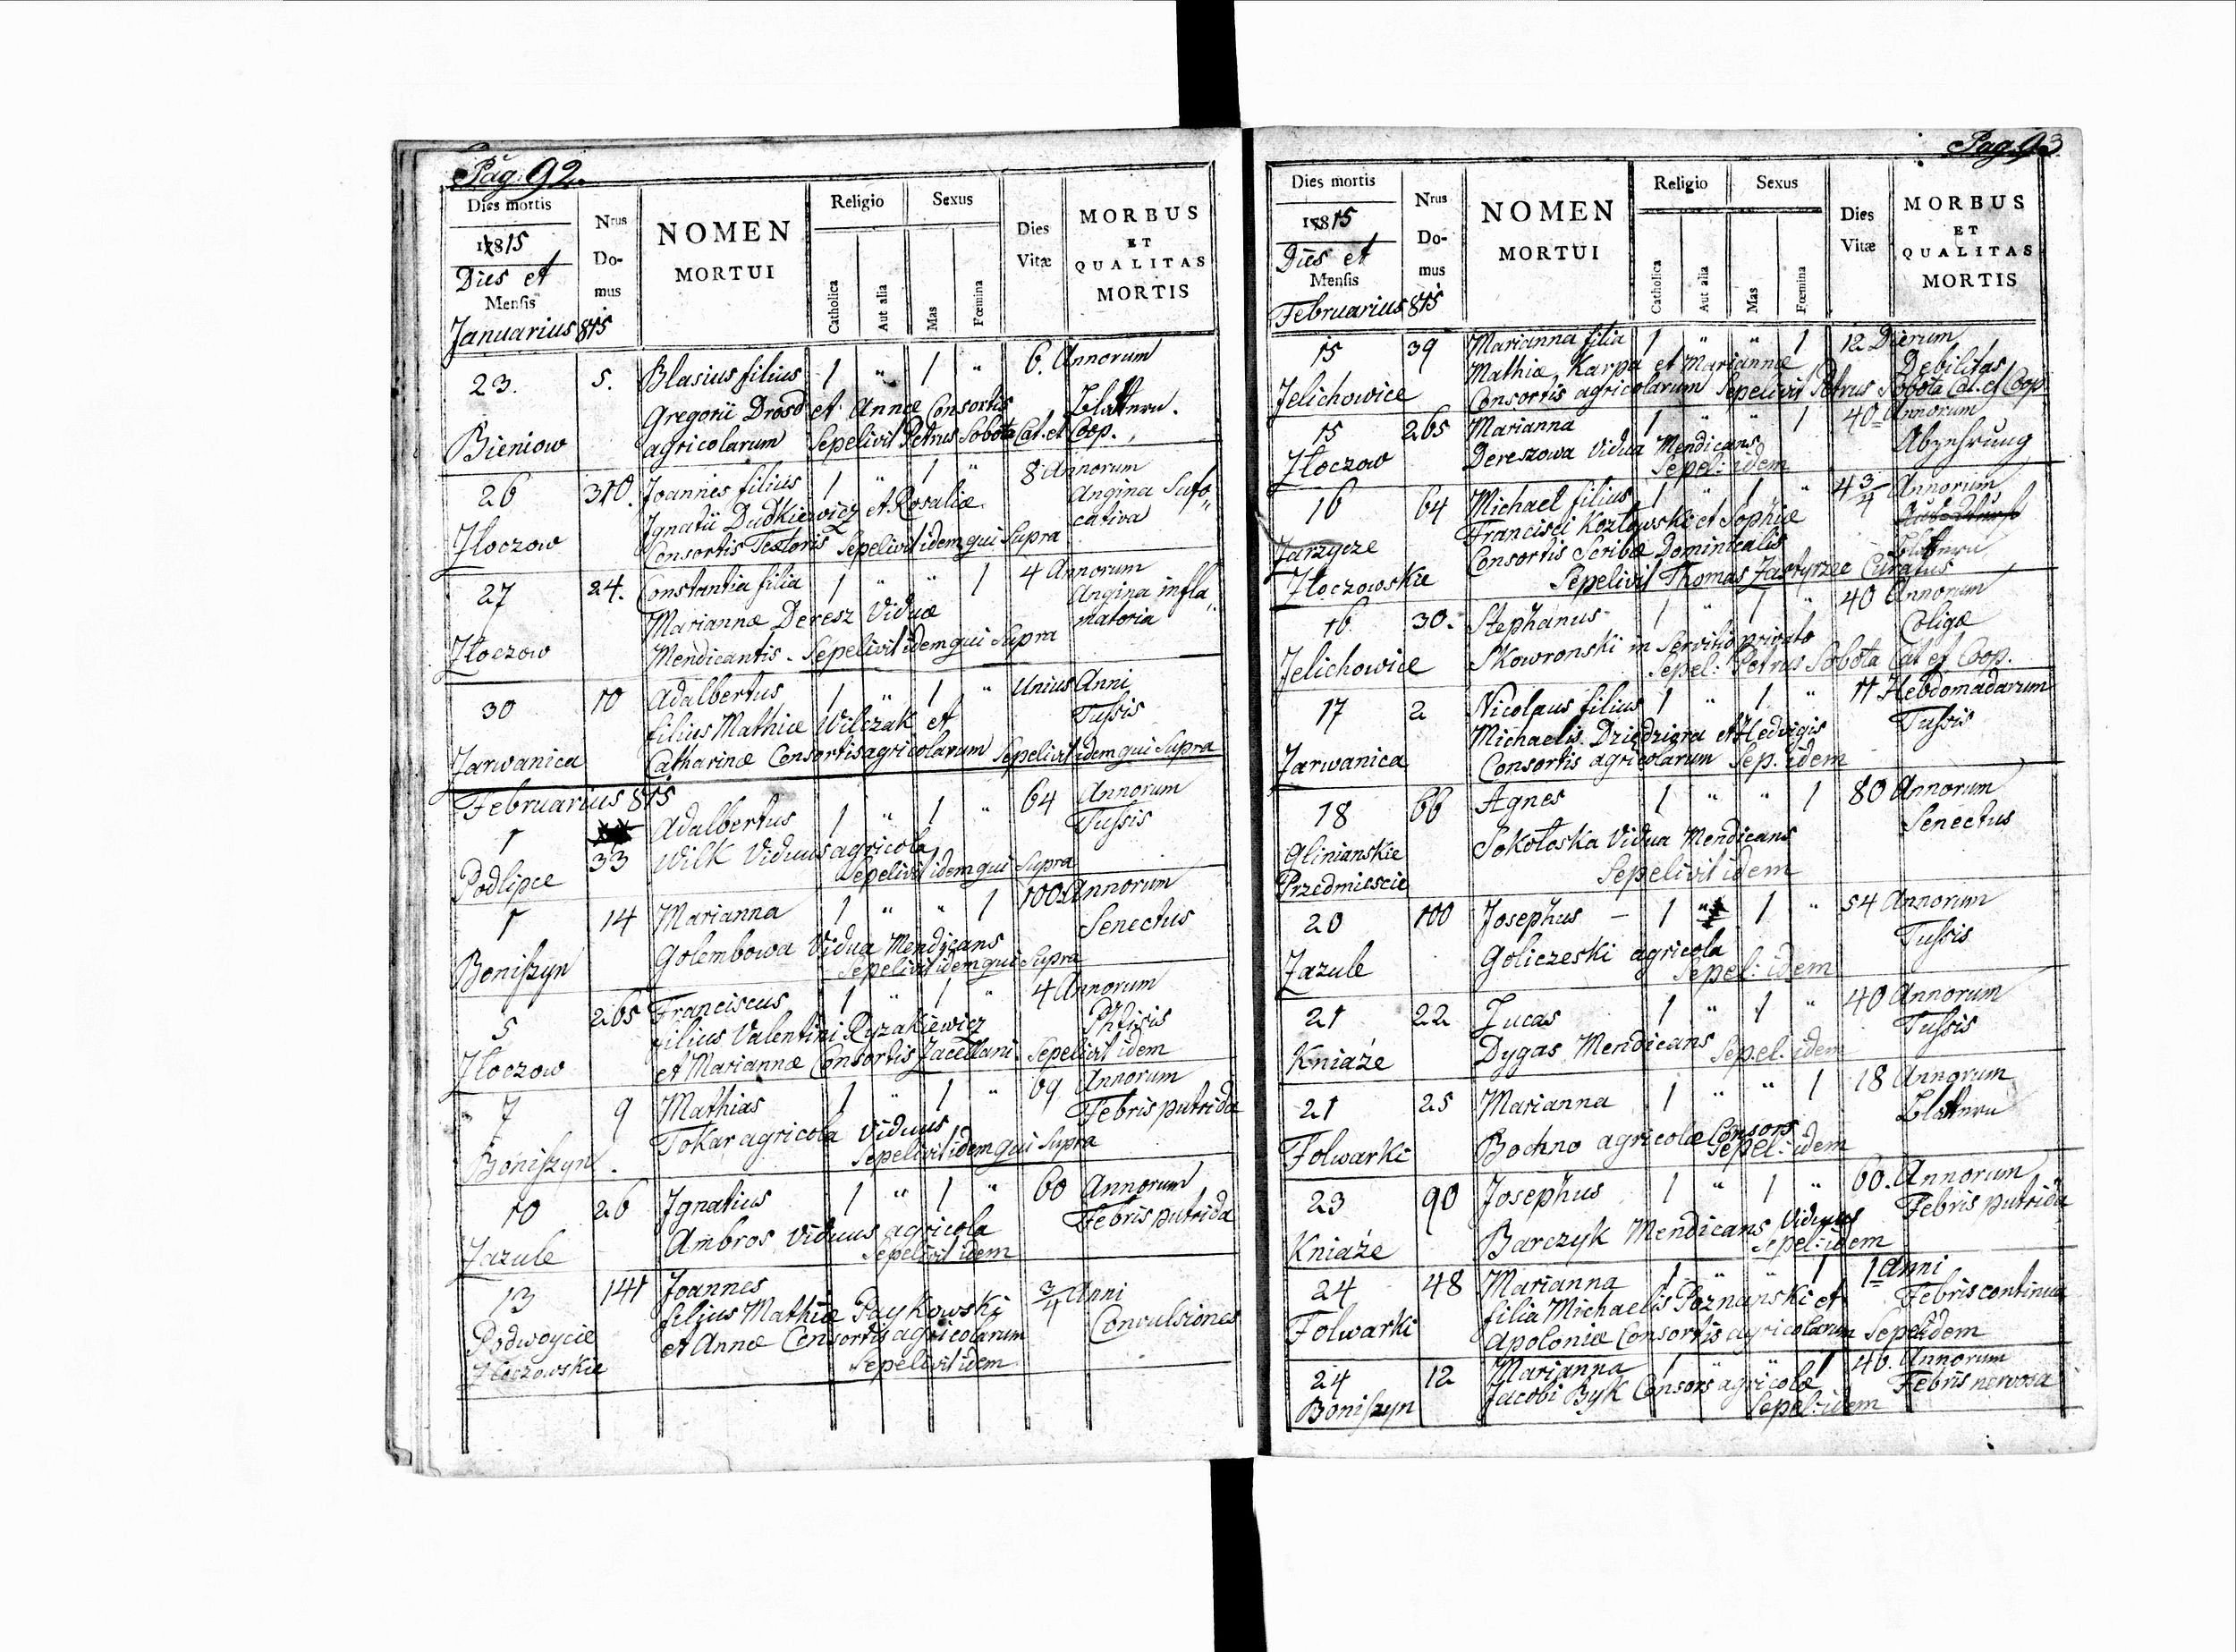 Pag. 92.
Dies mortis
Nrus Domus
NOMEN MORTUI
Religio
Catholica
Aut alia
Sexus
Mas
Fœmina
Dies Vitæ
MORBUS ET QUALITAS MORTIS
1815
Dies et
Mensis
Januarius 815
23. 5. Blasius filius 1 " 1 " 6. Annorum
Gregorii Drosd et Annæ Consortis Blattern.
Bieniow agricolarum Sepelivit Petrus Sobota Cat. et Coop.
26 310. Joannes filius 1 " 1 " 8 Annorum
Ignatii Dudkiewicz et Rosaliæ Angina Sufo„
cativa
Złoczow Consortis Textoris Sepelivit idem qui Supra
27 24. Constantia filia 1 " " 1 4 Annorum
Mariannæ Deresz Viduæ Angina infla„
matoria
Złoczow Mendicantis. Sepelivit idem qui Supra
30 10 Adalbertus 1 " 1 " Unius Anni
filius Mathiæ Wilczak et Tussis
Zarwanica Catharinæ Consortis agricolarum Sepelivit idem qui Supra
Februarius 815
1 33 Adalbertus 1 " 1 " 64 Annorum
Wilk Viduus agricola Tussis
Podlipce Sepelivit idem qui Supra
1 14 Marianna 1 " " 1 100 Annorum
Golembowa Vidua Mendicans Senectus
Boniszyn Sepelivit idem qui Supra
5 265 Franciscus 1 " 1 " 4 Annorum
filius Valentini Ryzakiewicz Phtisis
Złoczow et Mariannæ Consortis Sepelivit idem
7 9 Mathias 1 " 1 " 69 Annorum
Tokar agricola Viduus Febris putrida
Boniszyn. Sepelivit idem qui Supra
10 26 Ignatius 1 " 1 " 60 Annorum
Ambros Viduus agricola Febris putrida
Zazule Sepelivit idem
13 141 Joannes 3/4 Anni
filius Mathiæ Paykowski Convulsiones
Podwoycie et Annæ Consortis agricolarum
Złoczowskie Sepelivit idem
Pag. 93
Dies mortis
Nrus Domus
NOMEN MORTUI
Religio
Catholica
Aut alia
Sexus
Mas
Fœmina
Dies Vitæ
MORBUS ET QUALITAS MORTIS
1815
Dies et
Mensis
Februarius 815
15 39 Marianna filia 1 " " 1 12 Dierum
Mathiæ Karpa et Mariannæ Debilitas
Jelichowice Consortis agricolarum Sepelivit Petrus Sobota Cat. et Coop
15 265 Marianna 1 " " 1 40 Annorum
Złoczow Dereszowa Vidua Mendicans Abzehrung
Sepel: idem
16 64 Michael filius 1 " 1 " 4 3/4 Annorum
Francisci Kozłowski et Sophiæ
Zarzycze Consortis Scribæ Dominicalis Blattern
Złoczowskie Sepelivit Thomas Curatus
16 30. Stephanus 1 " 1 " 40 Annorum
Skowronski in Servitio privato Coligæ
Jelichowice Sepel: Petrus Sobota Cat et Coop.
17 2 Nicolaus filius 1 " 1 " 11 Hebdomadarum
Michaelis Dziędziora et Hedvigis Tussis
Zarwanica Consortis agricolarum Sep. idem
18 66 Agnes 1 " " 1 80 Annorum
Glinianskie Sokołoska Vidua Mendicans Senectus
Przedmiescie Sepelivit idem
20 100 Josephus – 1 " 1 " 54 Annorum
Goliczeski agricola Tussis
Zazule Sepel: idem
21 22 Lucas 1 " 1 " 40 Annorum
Tussis
Kniaże Dygas Mendicans Sepel: idem
21 25 Marianna 1 " " 1 18 Annorum
Blattern
Folwarki Bochno agricolæ Consors
Sepel: idem
23 90 Josephus 1 " 1 " 60. Annorum
Febris putrida
Kniaże Barczyk Mendicans Viduus
Sepel: idem
24 48 Marianna 1 " " 1 1 Anni
filia Michaelis Poznanski et Febris continua
Folwarki Apoloniæ Consortis agricolarum Sepel idem
24 12 Marianna 1 " " 1 46. Annorum
Jacobi Byk Consors agricolæ Febris nervosa
Boniszyn Sepel: idem